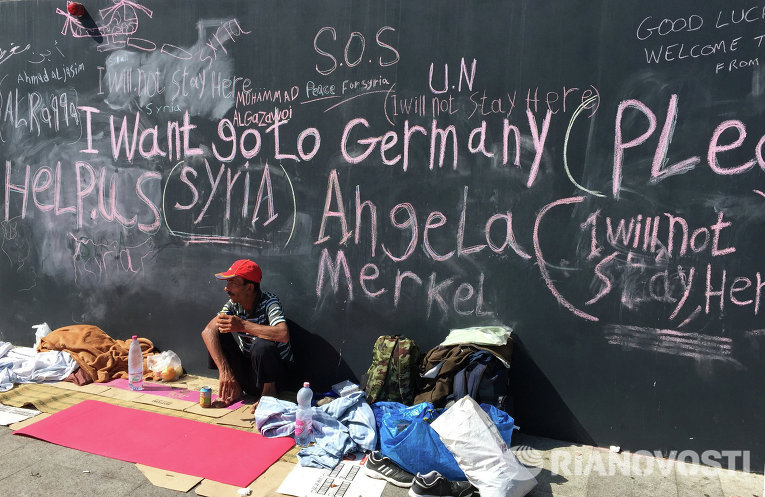 GOOD LUCK
WELCOME T
FROM
S.O.S
Peace For syria
U.N
(I will not Stay Here?)
Ahmad Al jasim
ALRaqqa
I will not Stay Here
Syria
MUHAMMAD
ALGazawoi
I Want go to Germany (PLEa
HeLP.U.S (SyRIA)
AngeLa
Merkel
(I will not
Stay Here
RIANOVOSTI